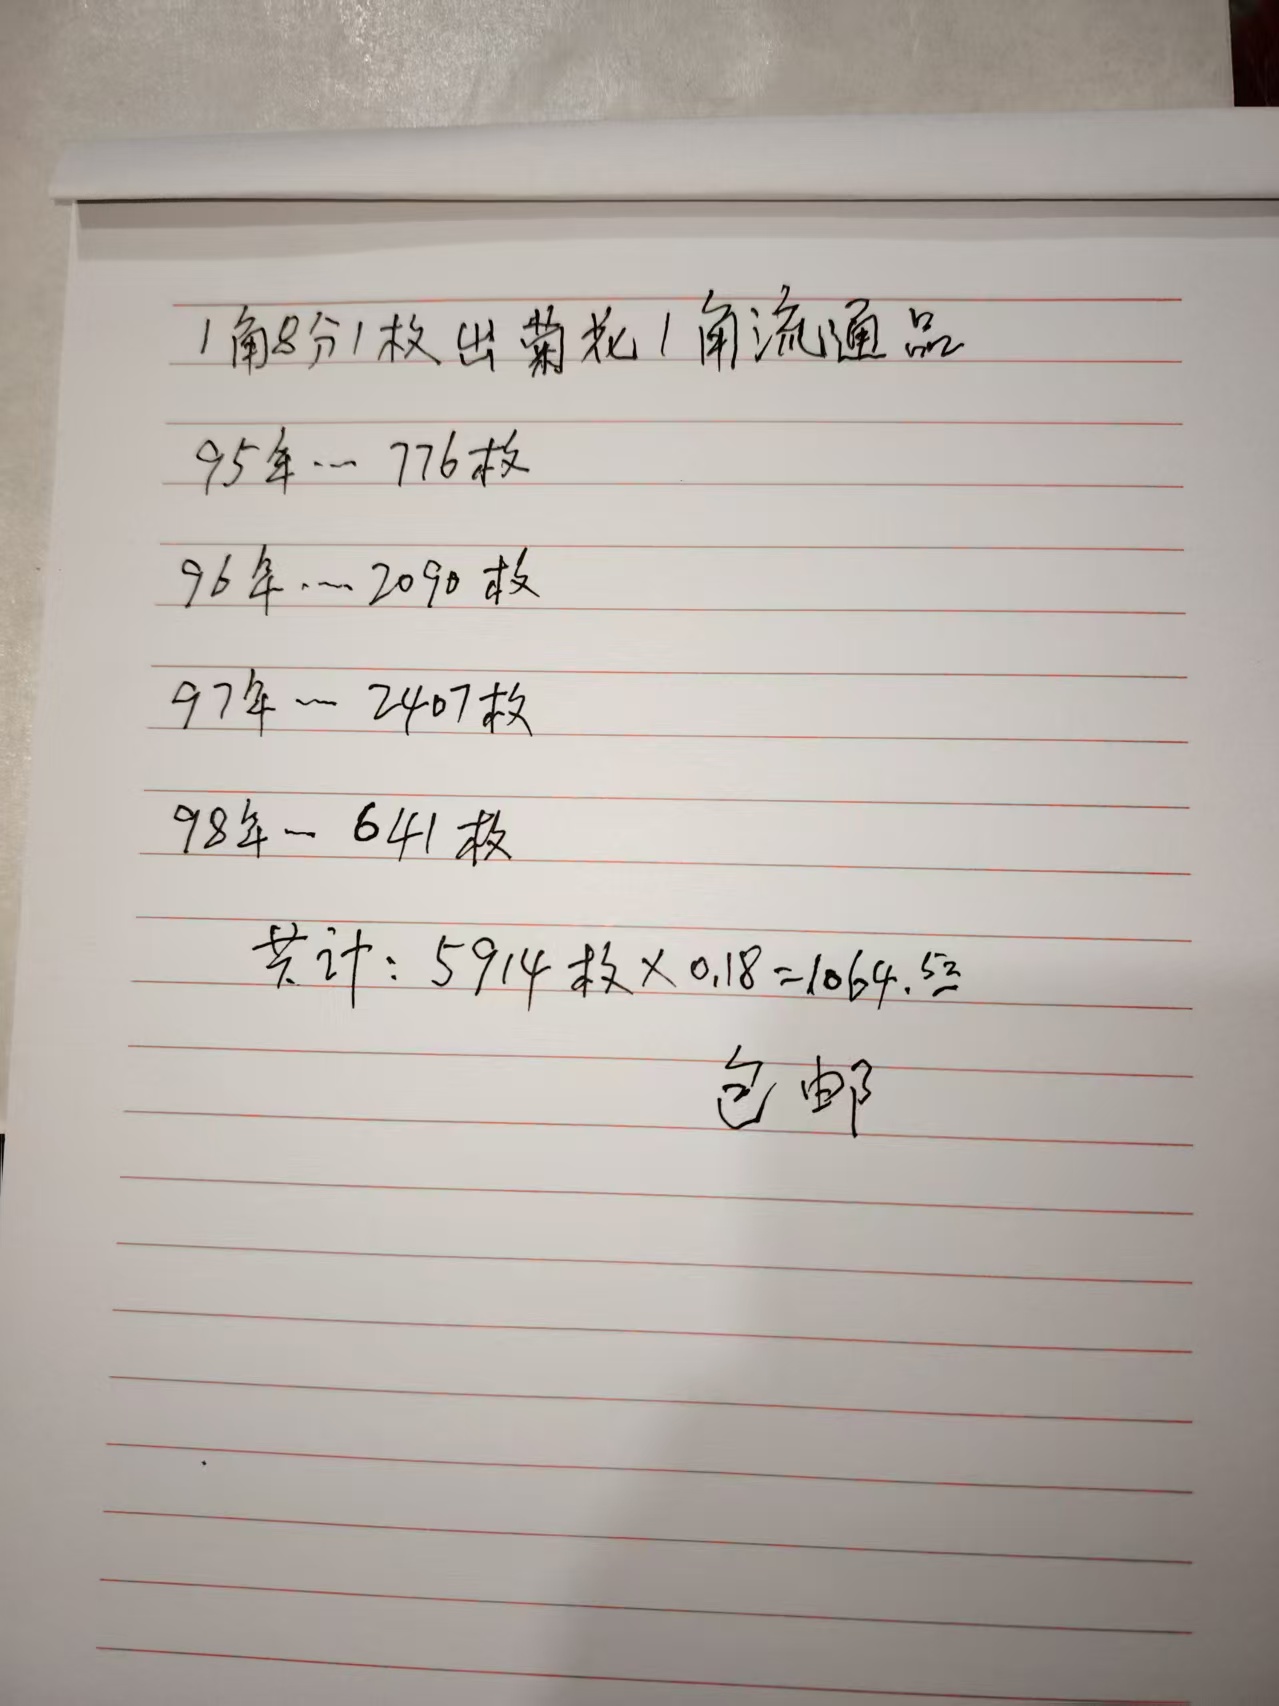 1角8分1枚出菊花1角流通品
95年…776枚
96年…2090枚
97年…2407枚
98年…641枚
共计:5914枚×0.18=1064.52
包邮